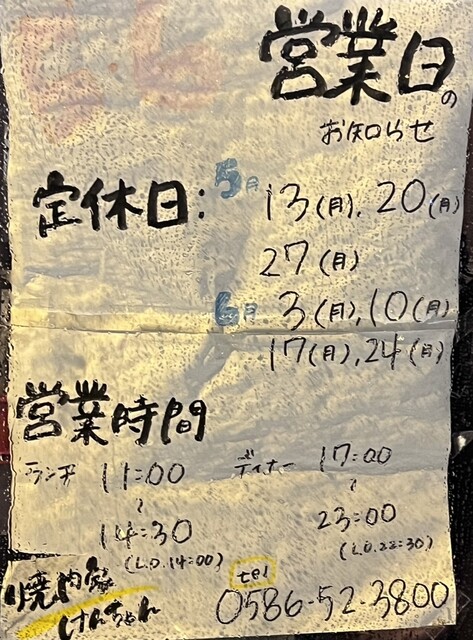 営業日の
お知らせ
定休日: 5月 13(月), 20(月)
27(月)
6月 3(月), 10(月)
17(月), 24(月)
営業時間
ランチ 11:00
~
14:30
(L.O.14:00)
ディナー 17:00
~
23:00
(L.O.22:30)
焼肉家
けんちゃん
tel
0586-52-3800